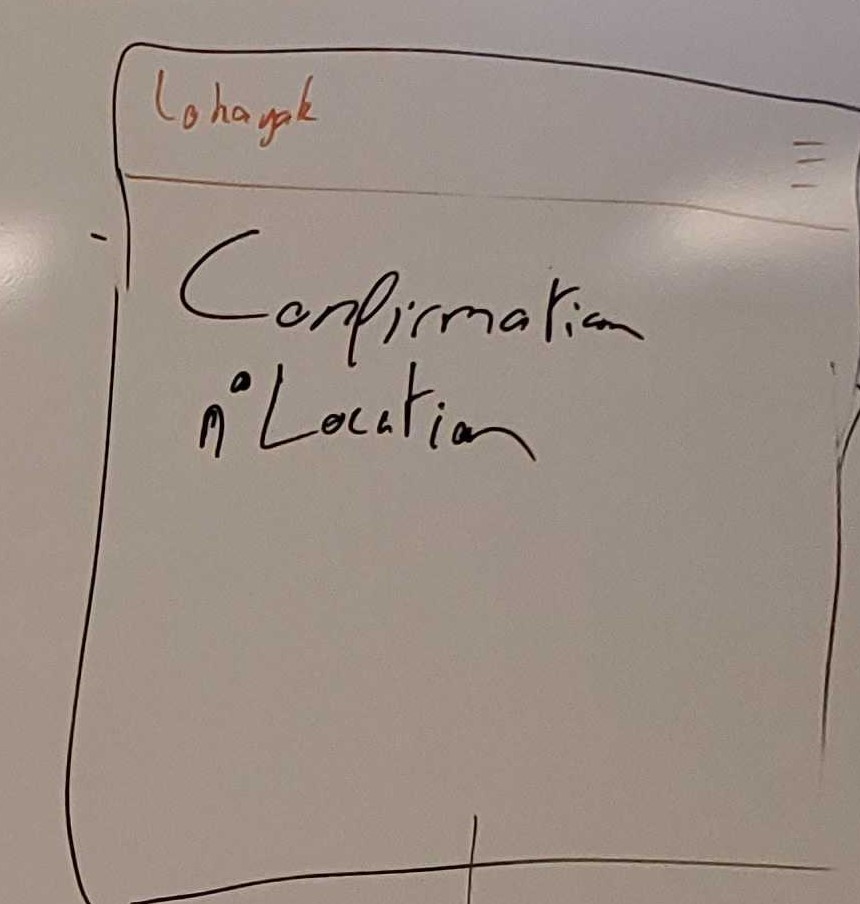 Lohayak
Confirmation
n° Location